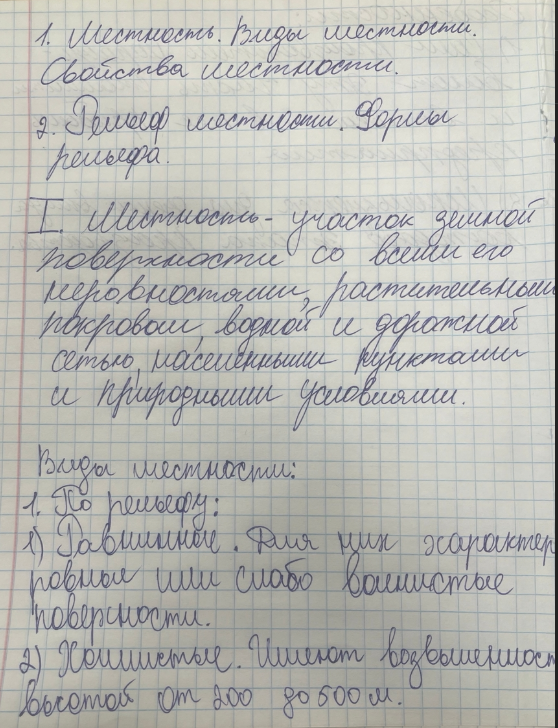 1. Местность. Виды местности.
Свойства местности.
2. Рельеф местности. Формы
рельефа.
I. Местность - участок земной
поверхности со всеми его
неровностями, растительным
покровом, водной и дорожной
сетью, населенными пунктами
и природными условиями.
Виды местности:
1. По рельефу:
1) Равнинное. Для них характер
ровные или слабо волнистые
поверхности.
2) Холмистые. Имеют возвышенност
высотой от 200 до 500 м.